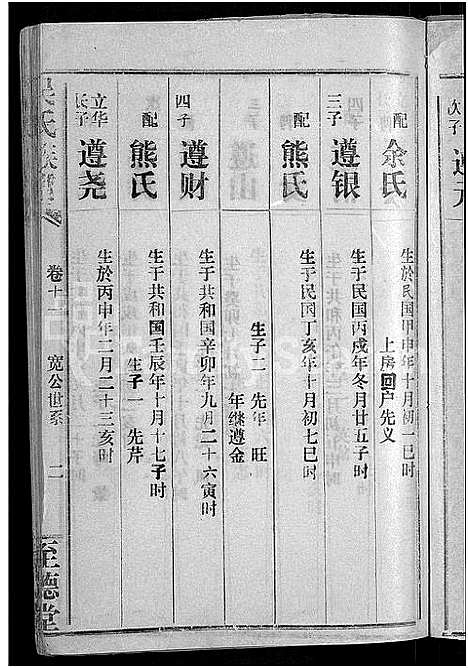 次子
配 余氏 生於民国甲申年十月初一巳时
上房回户先义
三子 遵银 生于民国丙戌年冬月廿五子时
配 熊氏 生于民囯丁亥年十月初七巳时
生子二 先年 旺
年继遵金
四子 遵财 生于共和国辛卯年九月二十六寅时
配 熊氏 生于共和国壬辰年十月十七子时
生子一 先芹
立华长子 遵尧 生於丙申年二月二十三亥时
吴氏族谱 卷十一 宽公世系 二 至德堂